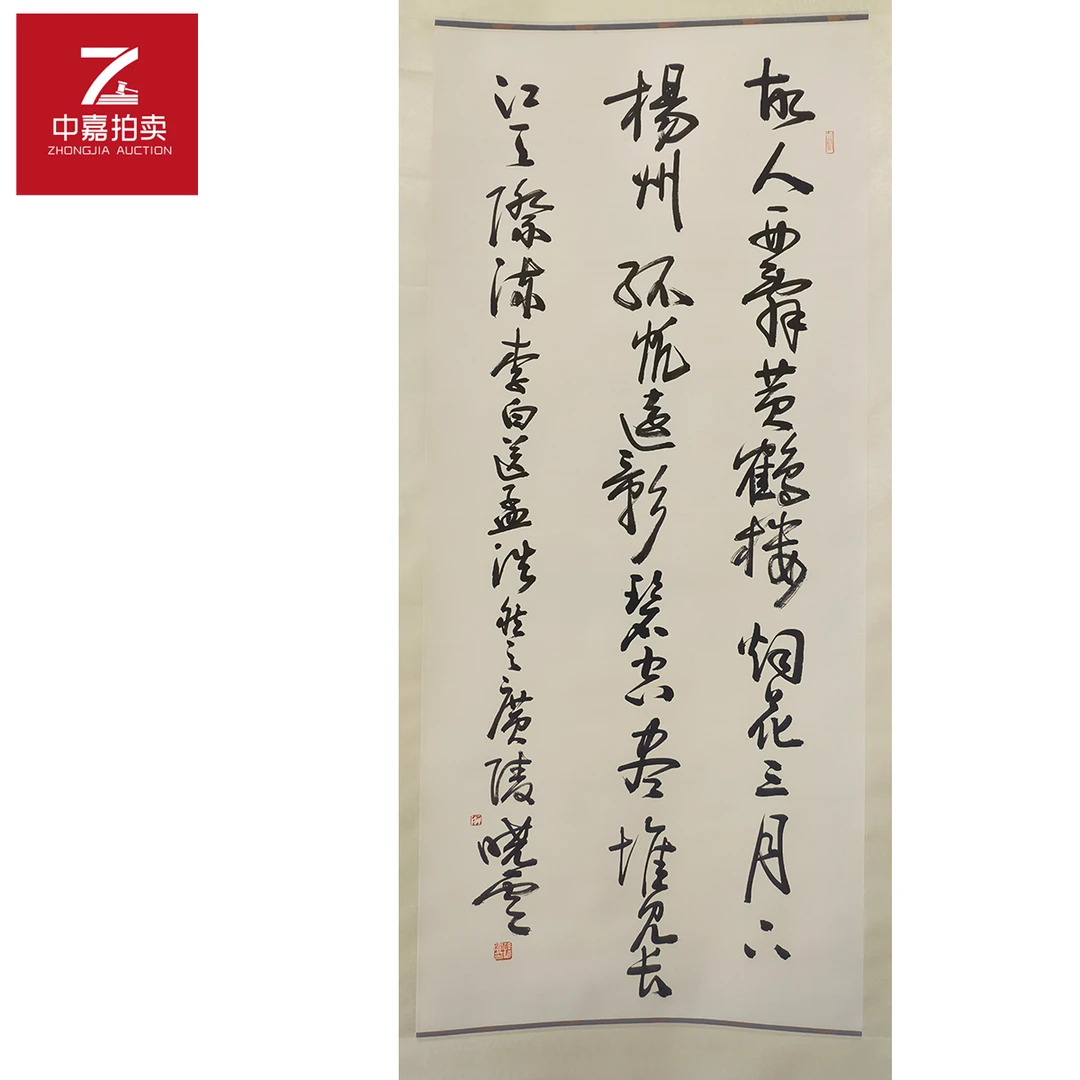 中嘉拍卖
ZHONGJIA AUCTION
故人西辞黄鹤楼烟花三月下
楊州孤帆遠影碧空尽惟見长
江天際流李白送孟浩然之廣陵曉雲